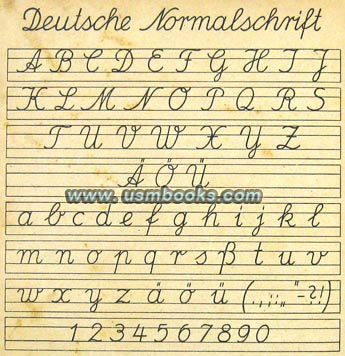 Deutsche Normalschrift
A B C D E F G H I J
K L M N O P Q R S
T U V W X Y Z
Ä Ö Ü
www.usmbooks.com
a b c d e f g h i j k l
m n o p q r s ß t u v
w x y z ä ö ü (.,:;„"-?!)
1 2 3 4 5 6 7 8 9 0